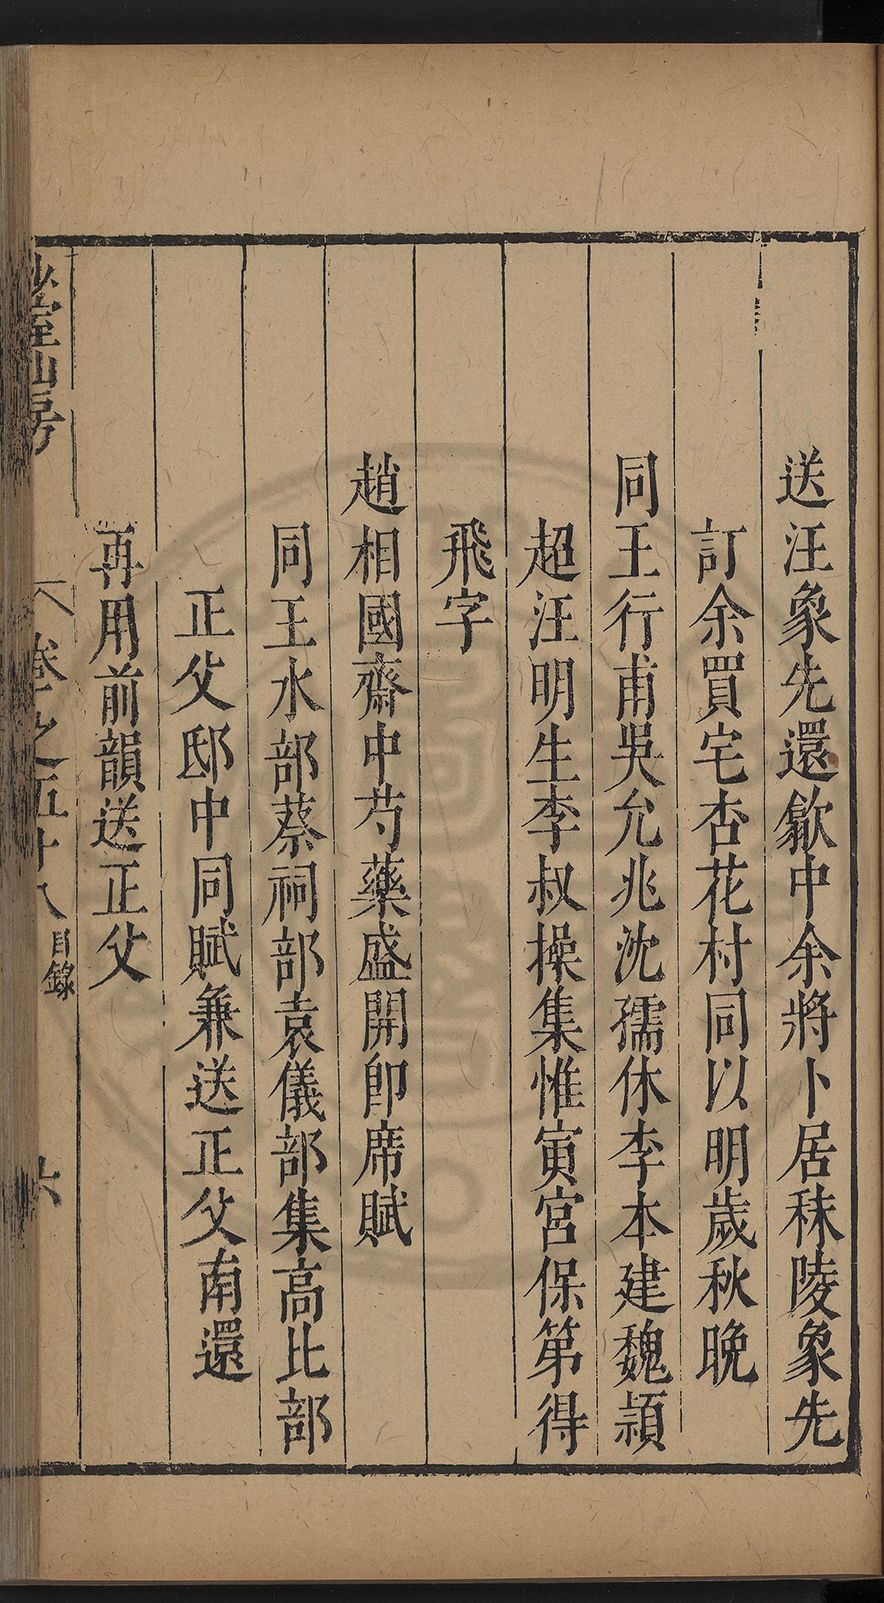 送汪象先還歙中余將卜居秣陵象先
訂余買宅杏花村同以明歲秋晚
同王行甫吳允兆沈孺休李本建魏頴
超汪明生李叔操集惟寅宮保第得
飛字
趙相國齋中芍藥盛開即席賦
同王水部蔡祠部袁儀部集高比部
正父邸中同賦兼送正父南還
再用前韻送正父
室山房
卷之五十八目錄
六